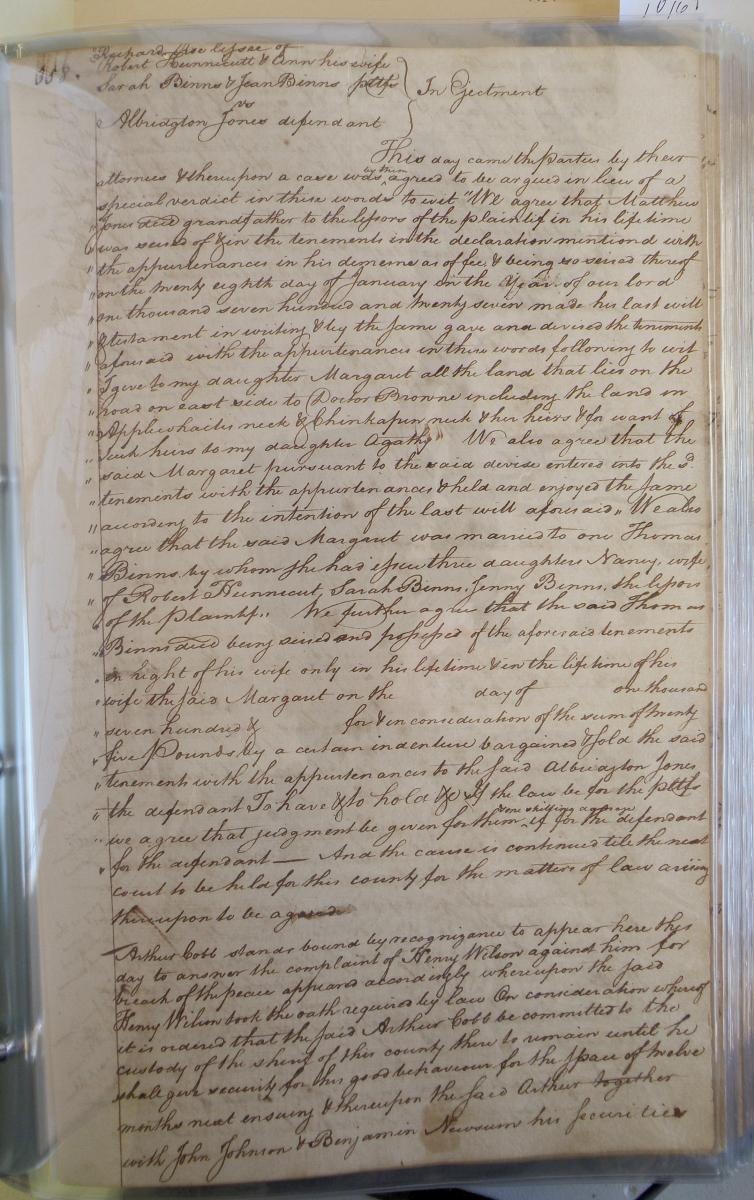 Richard Roe lessee of
Robert Hunnicutt & Ann his wife
Sarah Binns & Jean Binns pltfs
vs
Albridgton Jones defendant
In Ejectment
This day came the parties by their
attornies & thereupon a case was by them agreed to be argued in lieu of a
special verdict in these words to wit "We agree that Matthew
" Jones died grandfather to the lessors of the plaintif in his lifetime
" was seised of & in the tenements in the declaration mentiond with
" the appurtenances in his demesne as of fee & being so seised thereof
" on the twenty eighth day of January in the Year of our lord
" one thousand seven hundred and twenty seven made his last will
" & testament in writing & by the same gave and devised the tenements
" aforesaid with the appurtenances in these words following to wit
" I give to my daughter Margaret all the land that lies on the
" road on east side to Doctor Browne including the land in
" Applewhaites neck & Chinkapin neck & her heirs & for want of
" such heirs to my daughter Agathy" We also agree that the
" said Margaret pursuant to the said devise entered into the sd.
" tenements with the appurtenances & held and enjoyed the same
" according to the intention of the last will aforesaid, We also
" agree that the said Margaret was married to one Thomas
" Binns by whom she had issue three daughters Nancy, wife
" of Robert Hunnicut, Sarah Binns, Jenny Binns, the lessors
" of the plaintif. We further agree that the said Thomas
" Binns died being seised and possessed of the aforesaid tenements
" in right of his wife only in his lifetime & in the lifetime of his
" wife the said Margaret on the day of one thousand
" seven hundred & for & in consideration of the sum of twenty
" five Pounds by a certain indenture bargained & sold the said
" tenements with the appurtenances to the said Albridgton Jones
" the defendant To have & to hold &c If the law be for the pltfs
" we agree that judgment be given for them one shilling damages if for the defendant
" for the defendant — And the cause is continued till the next
court to be held for this county for the matters of law arising
thereupon to be argued
Arthur Cobb stands bound by recognizance to appear here this
day to answer the complaint of Henry Wilson against him for
breach of the peace appeared accordingly whereupon the said
Henry Wilson took the oath required by law On consideration whereof
it is ordered that the said Arthur Cobb be committed to the
custody of the sherif of this county there to remain until he
shall give security for his good behaviour for the space of twelve
months next ensuing & thereupon the said Arthur together
with John Johnson & Benjamin Newsum his securities